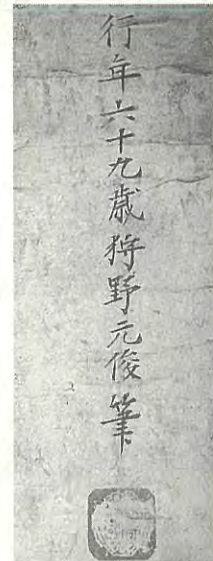 行年六十九歳狩野元俊筆